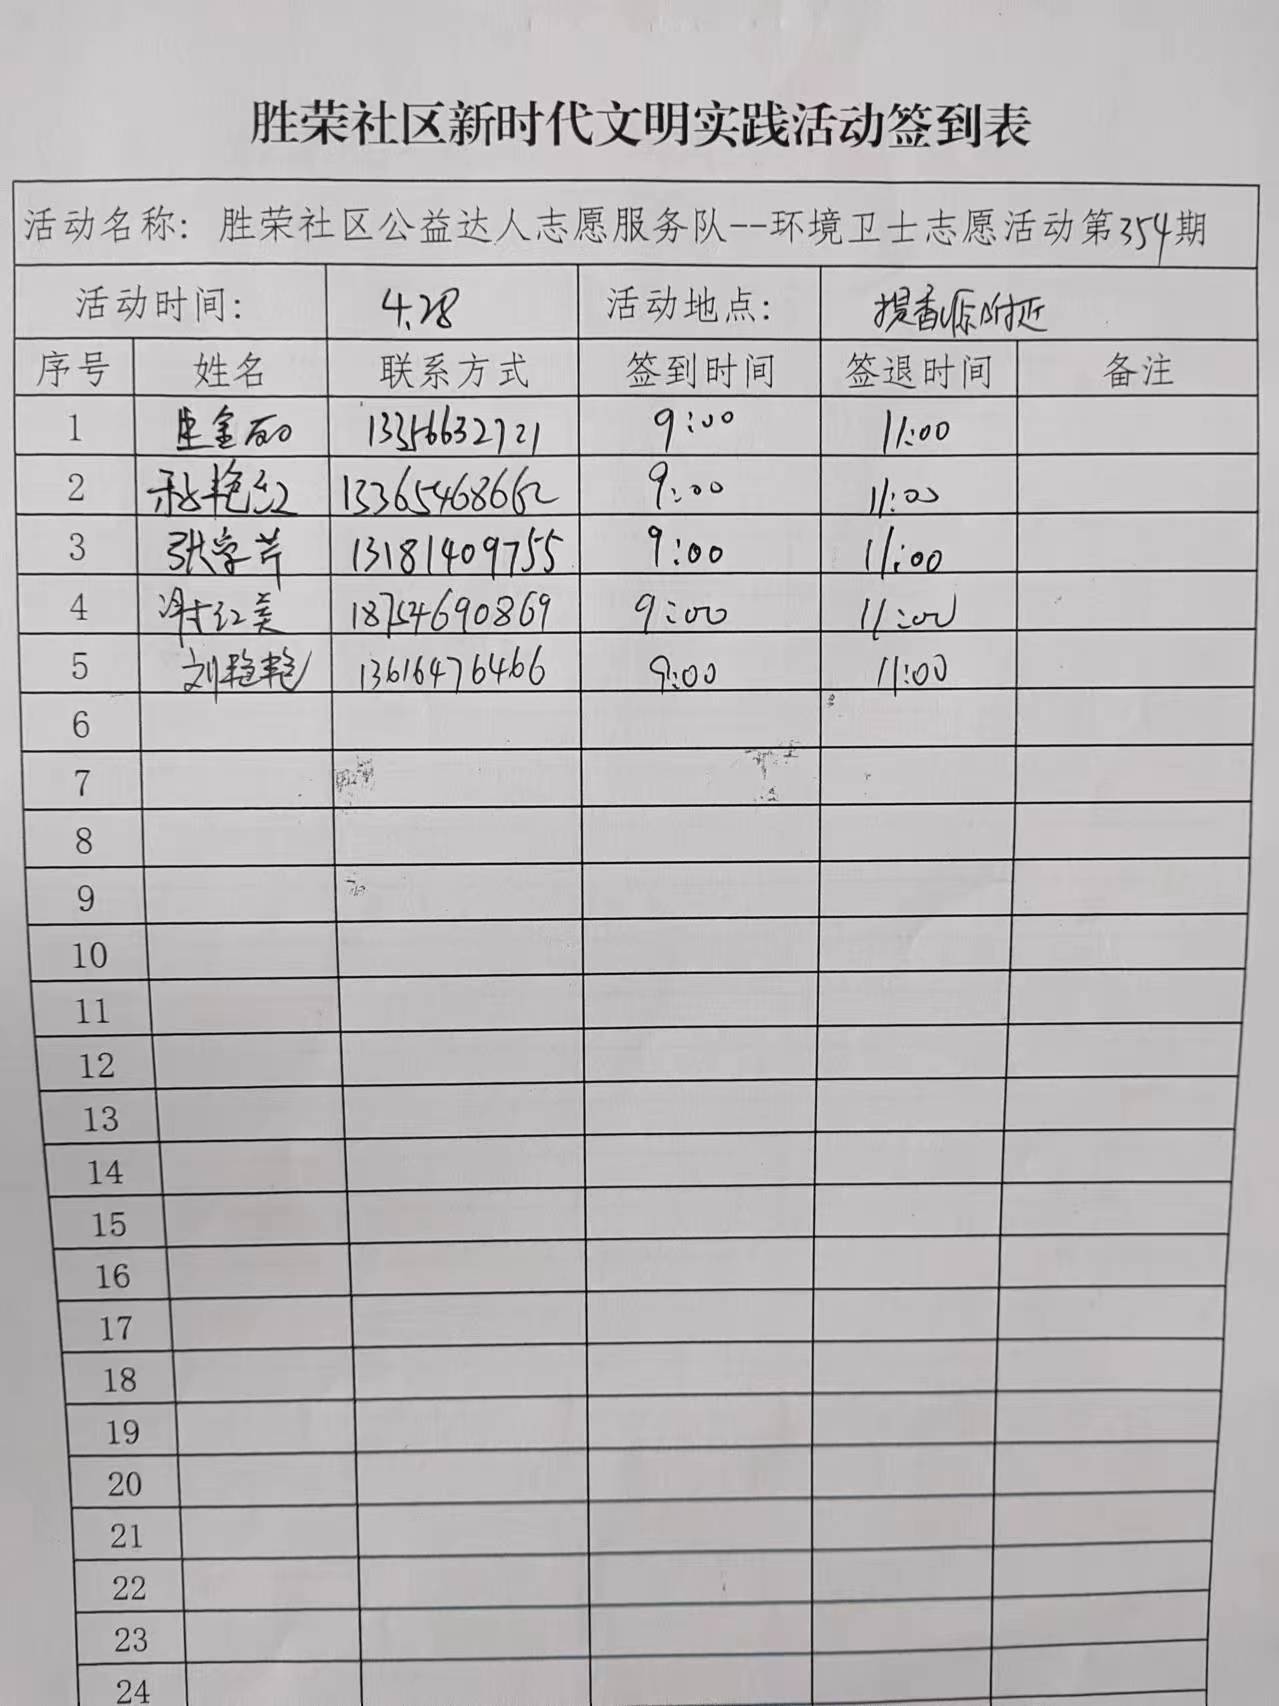 胜荣社区新时代文明实践活动签到表
活动名称：胜荣社区公益达人志愿服务队--环境卫士志愿活动第354期
活动时间： 4.28 活动地点： 提香源附近
序号 姓名 联系方式 签到时间 签退时间 备注
1 金丽 13356632721 9:00 11:00
2 艳红 13365468662 9:00 11:00
3 张学芹 13181409755 9:00 11:00
4 红美 18754690869 9:00 11:00
5 刘艳艳 13616476466 9:00 11:00
6
7
8
9
10
11
12
13
14
15
16
17
18
19
20
21
22
23
24